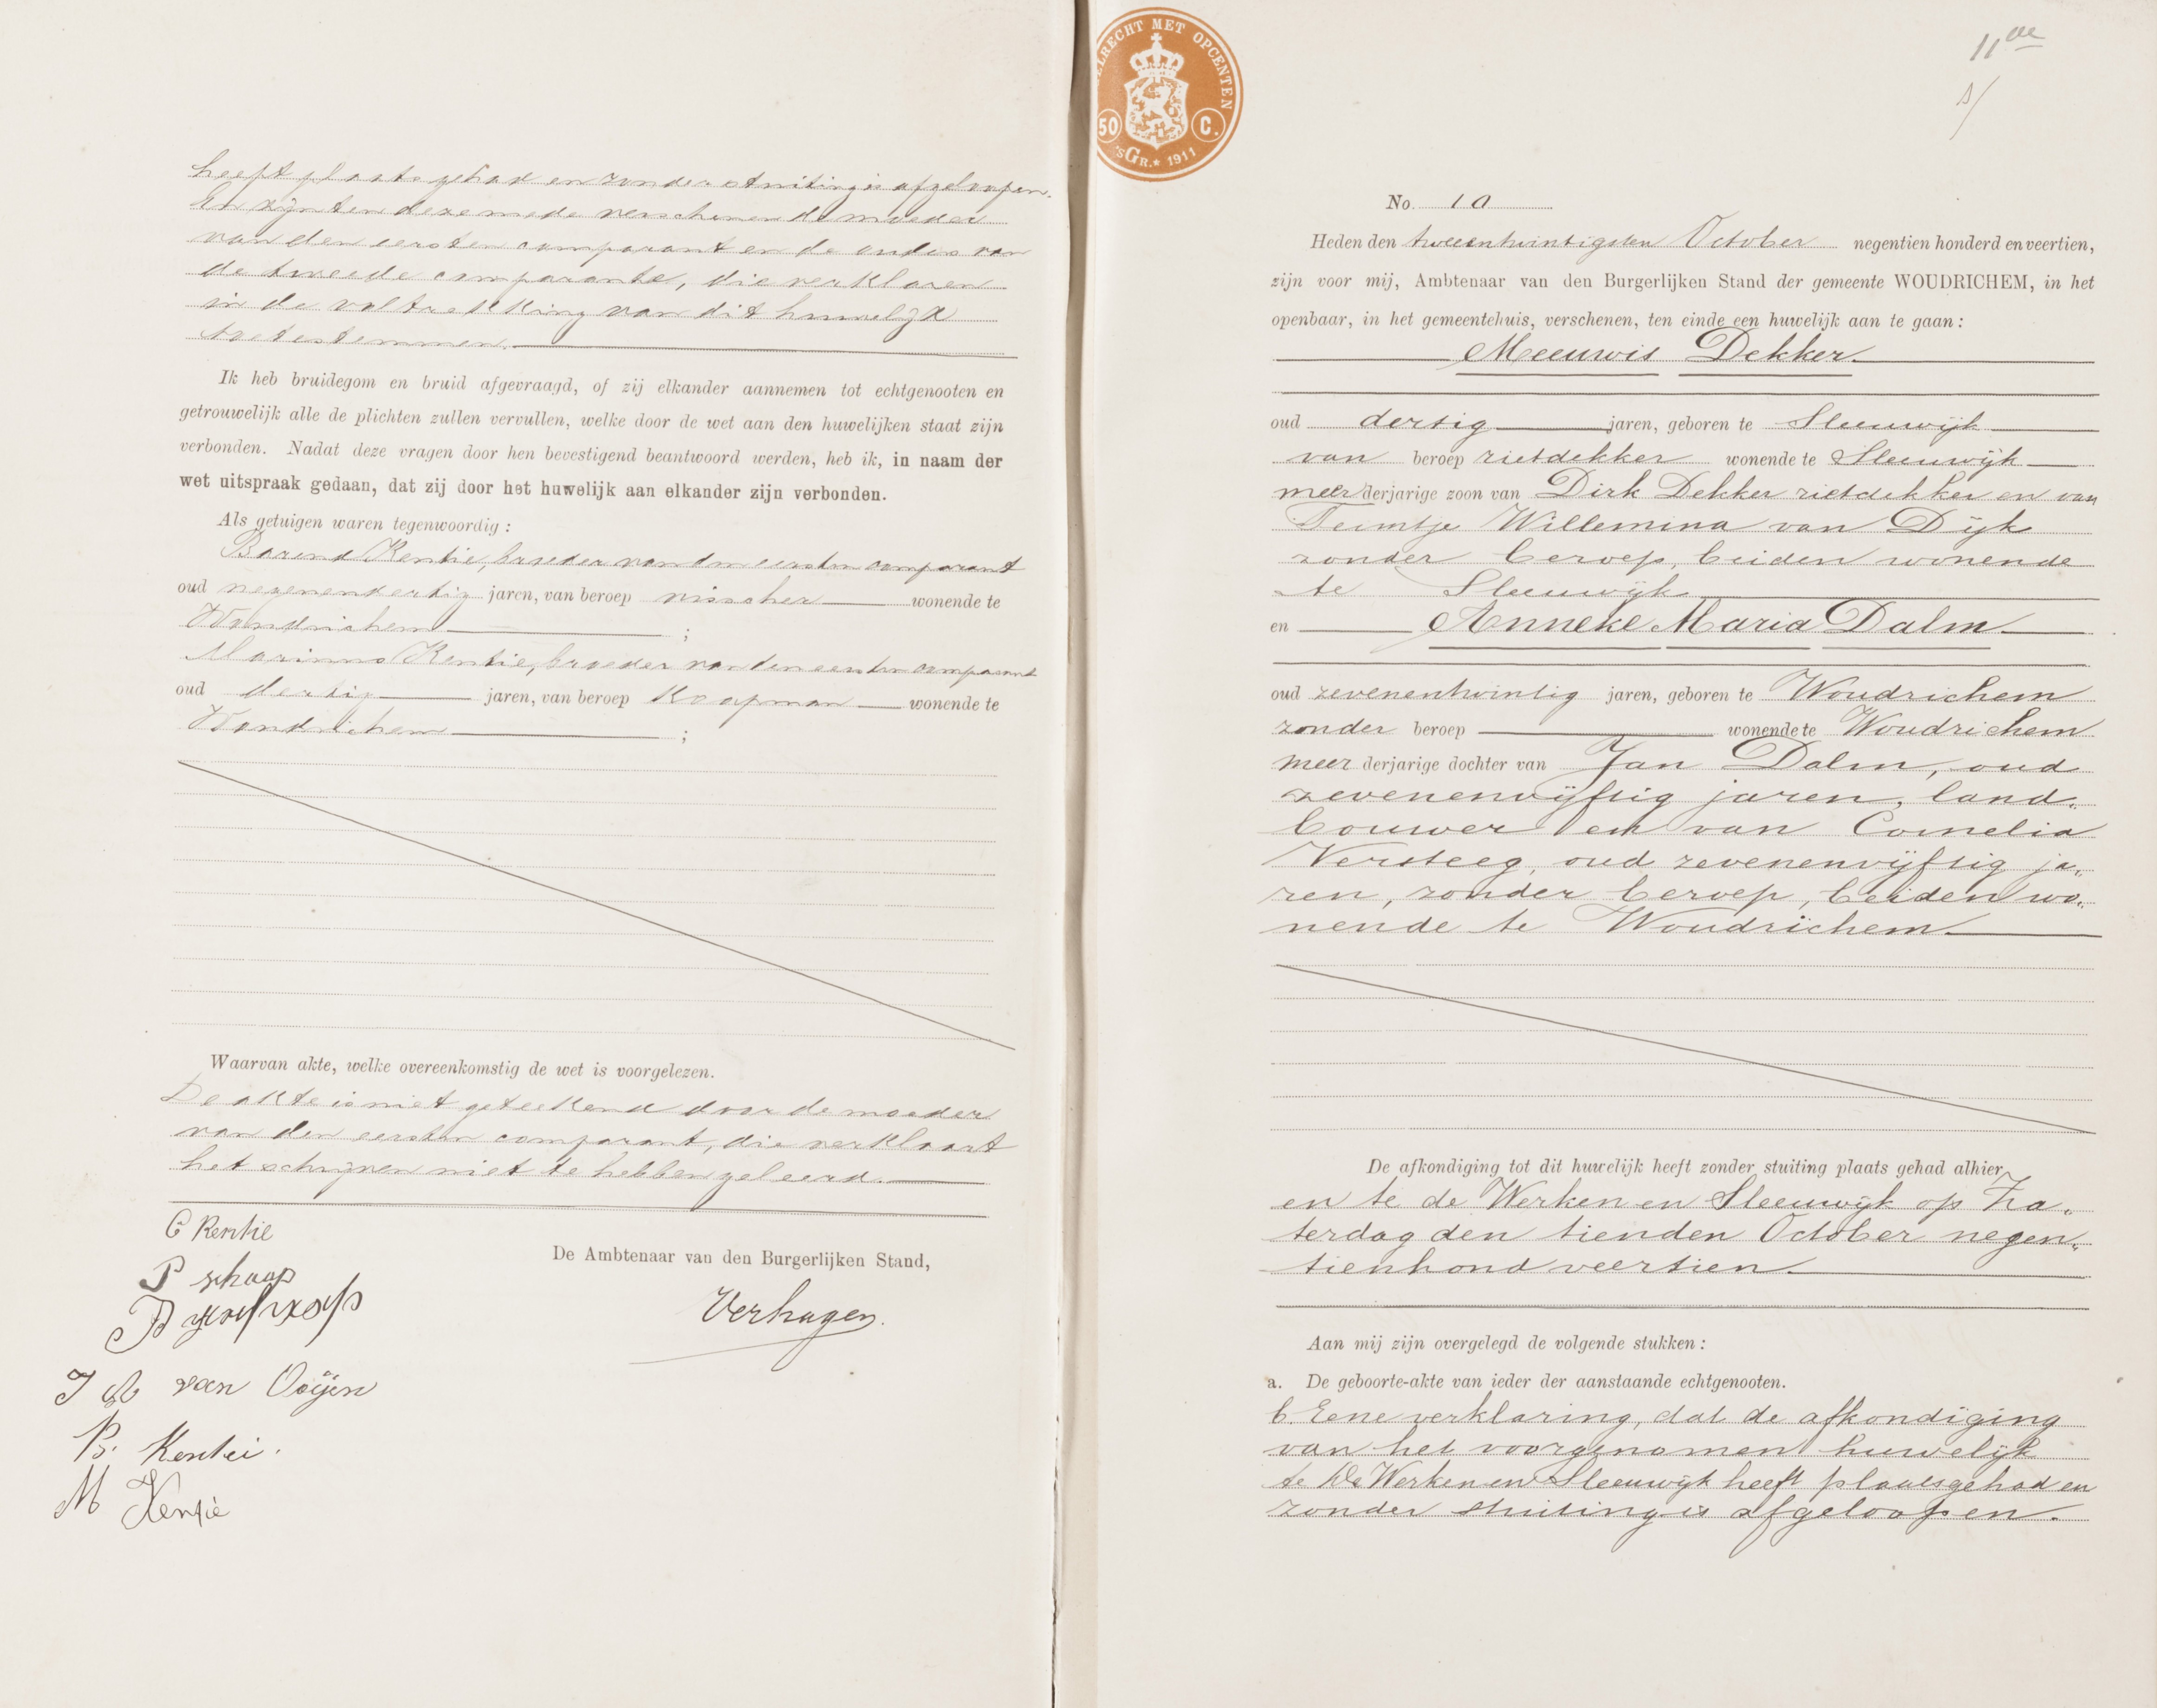 heeft plaats gehad en zonder stuiting is afgeloopen.
En zijn ten deze mede verschenen de moeder
van den eersten comparant en de ouders van
de tweede comparante, die verklaren
in de voltrekking van dit huwelijk
toetestemmen.
Ik heb bruidegom en bruid afgevraagd, of zij elkander aannemen tot echtgenooten en
getrouwelijk alle de plichten zullen vervullen, welke door de wet aan den huwelijken staat zijn
verbonden. Nadat deze vragen door hen bevestigend beantwoord werden, heb ik, in naam der
wet uitspraak gedaan, dat zij door het huwelijk aan elkander zijn verbonden.
Als getuigen waren tegenwoordig:
Barend Kentie, broeder van den eersten comparant
oud negenendertig jaren, van beroep visscher wonende te
Woudrichem ;
Marinus Kentie, broeder van den eersten comparant
oud dertig jaren, van beroep Koopman wonende te
Woudrichem ;
Waarvan akte, welke overeenkomstig de wet is voorgelezen.
De akte is niet geteekend door de moeder
van den eersten comparant, die verklaart
het schrijven niet te hebben geleerd.
G Kentie
P schaap
De Ambtenaar van den Burgerlijken Stand,
Verhagen.
van Ooijen
B. Kentei.
M Kentie
ZELRECHT MET OPCENTEN
50 C.
'sGR. * 1911
11de
No. 10
Heden den tweentwintigsten October negentien honderd en veertien,
zijn voor mij, Ambtenaar van den Burgerlijken Stand der gemeente WOUDRICHEM, in het
openbaar, in het gemeentehuis, verschenen, ten einde een huwelijk aan te gaan:
Meeuwis Dekker
oud dertig jaren, geboren te Sleeuwijk
van beroep rietdekker wonende te Sleeuwijk
meerderjarige zoon van Dirk Dekker rietdekker en van
Teuntje Willemina van Dijk
zonder beroep, beiden wonende
te Sleeuwijk
en Anneke Maria Dalm
oud zevenentwintig jaren, geboren te Woudrichem
zonder beroep wonende te Woudrichem
meerderjarige dochter van Jan Dalm, oud
zevenenvijftig jaren, land„
bouwer en van Cornelia
Versteeg, oud zevenenvijftig ja„
ren, zonder beroep, beiden wo„
nende te Woudrichem.
De afkondiging tot dit huwelijk heeft zonder stuiting plaats gehad alhier
en te de Werken en Sleeuwijk op Za„
terdag den tienden October negen„
tienhond veertien.
Aan mij zijn overgelegd de volgende stukken:
a. De geboorte-akte van ieder der aanstaande echtgenooten.
b. Eene verklaring, dat de afkondiging
van het voorgenomen huwelijk
te De Werken en Sleeuwijk heeft plaatsgehad en
zonder stuiting is afgeloopen.